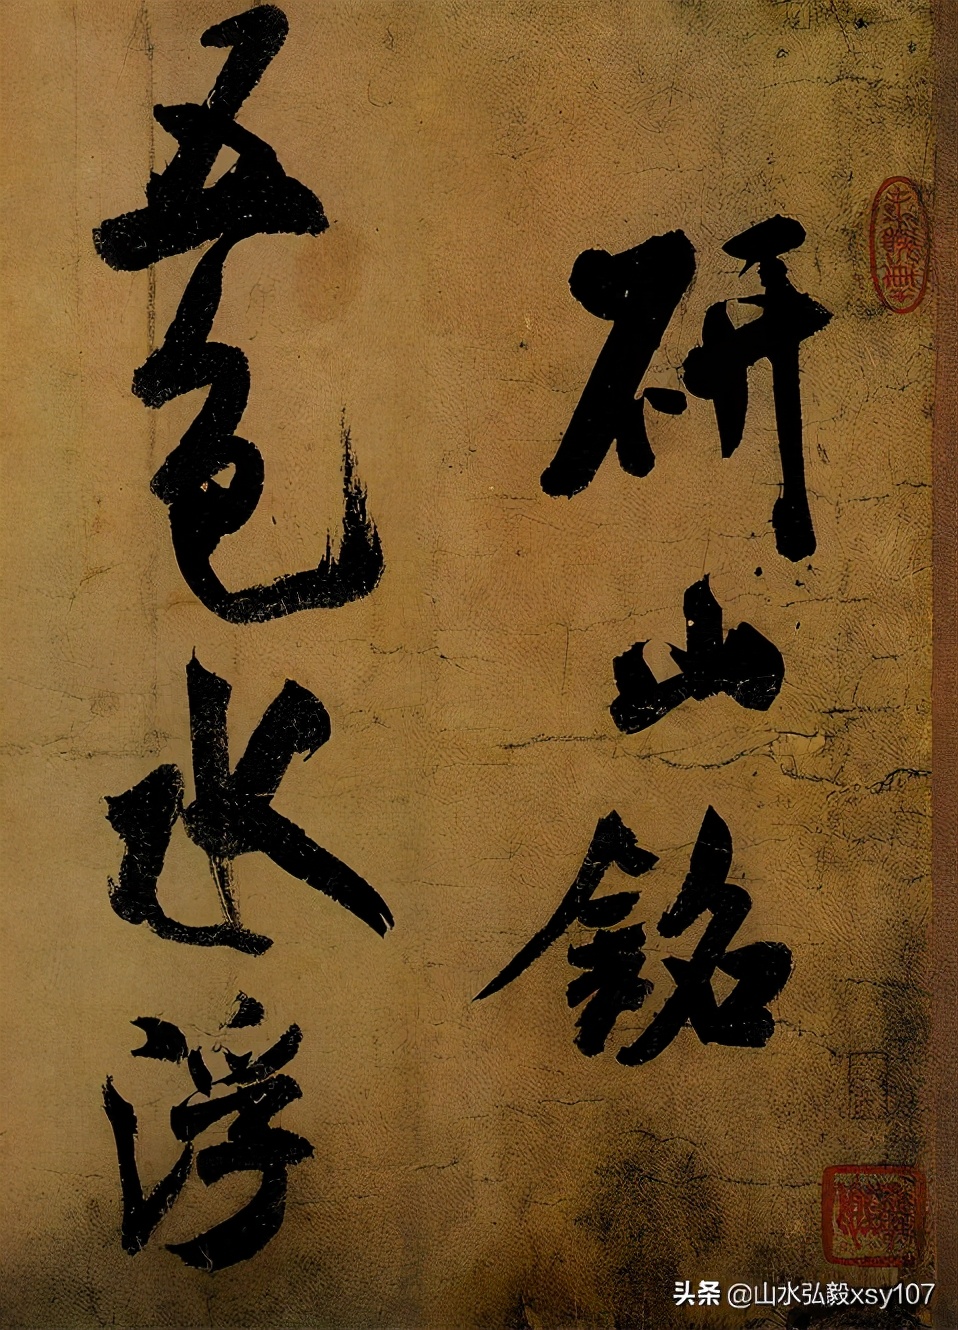 研山銘
五色水浮
头条 @山水弘毅xsy107